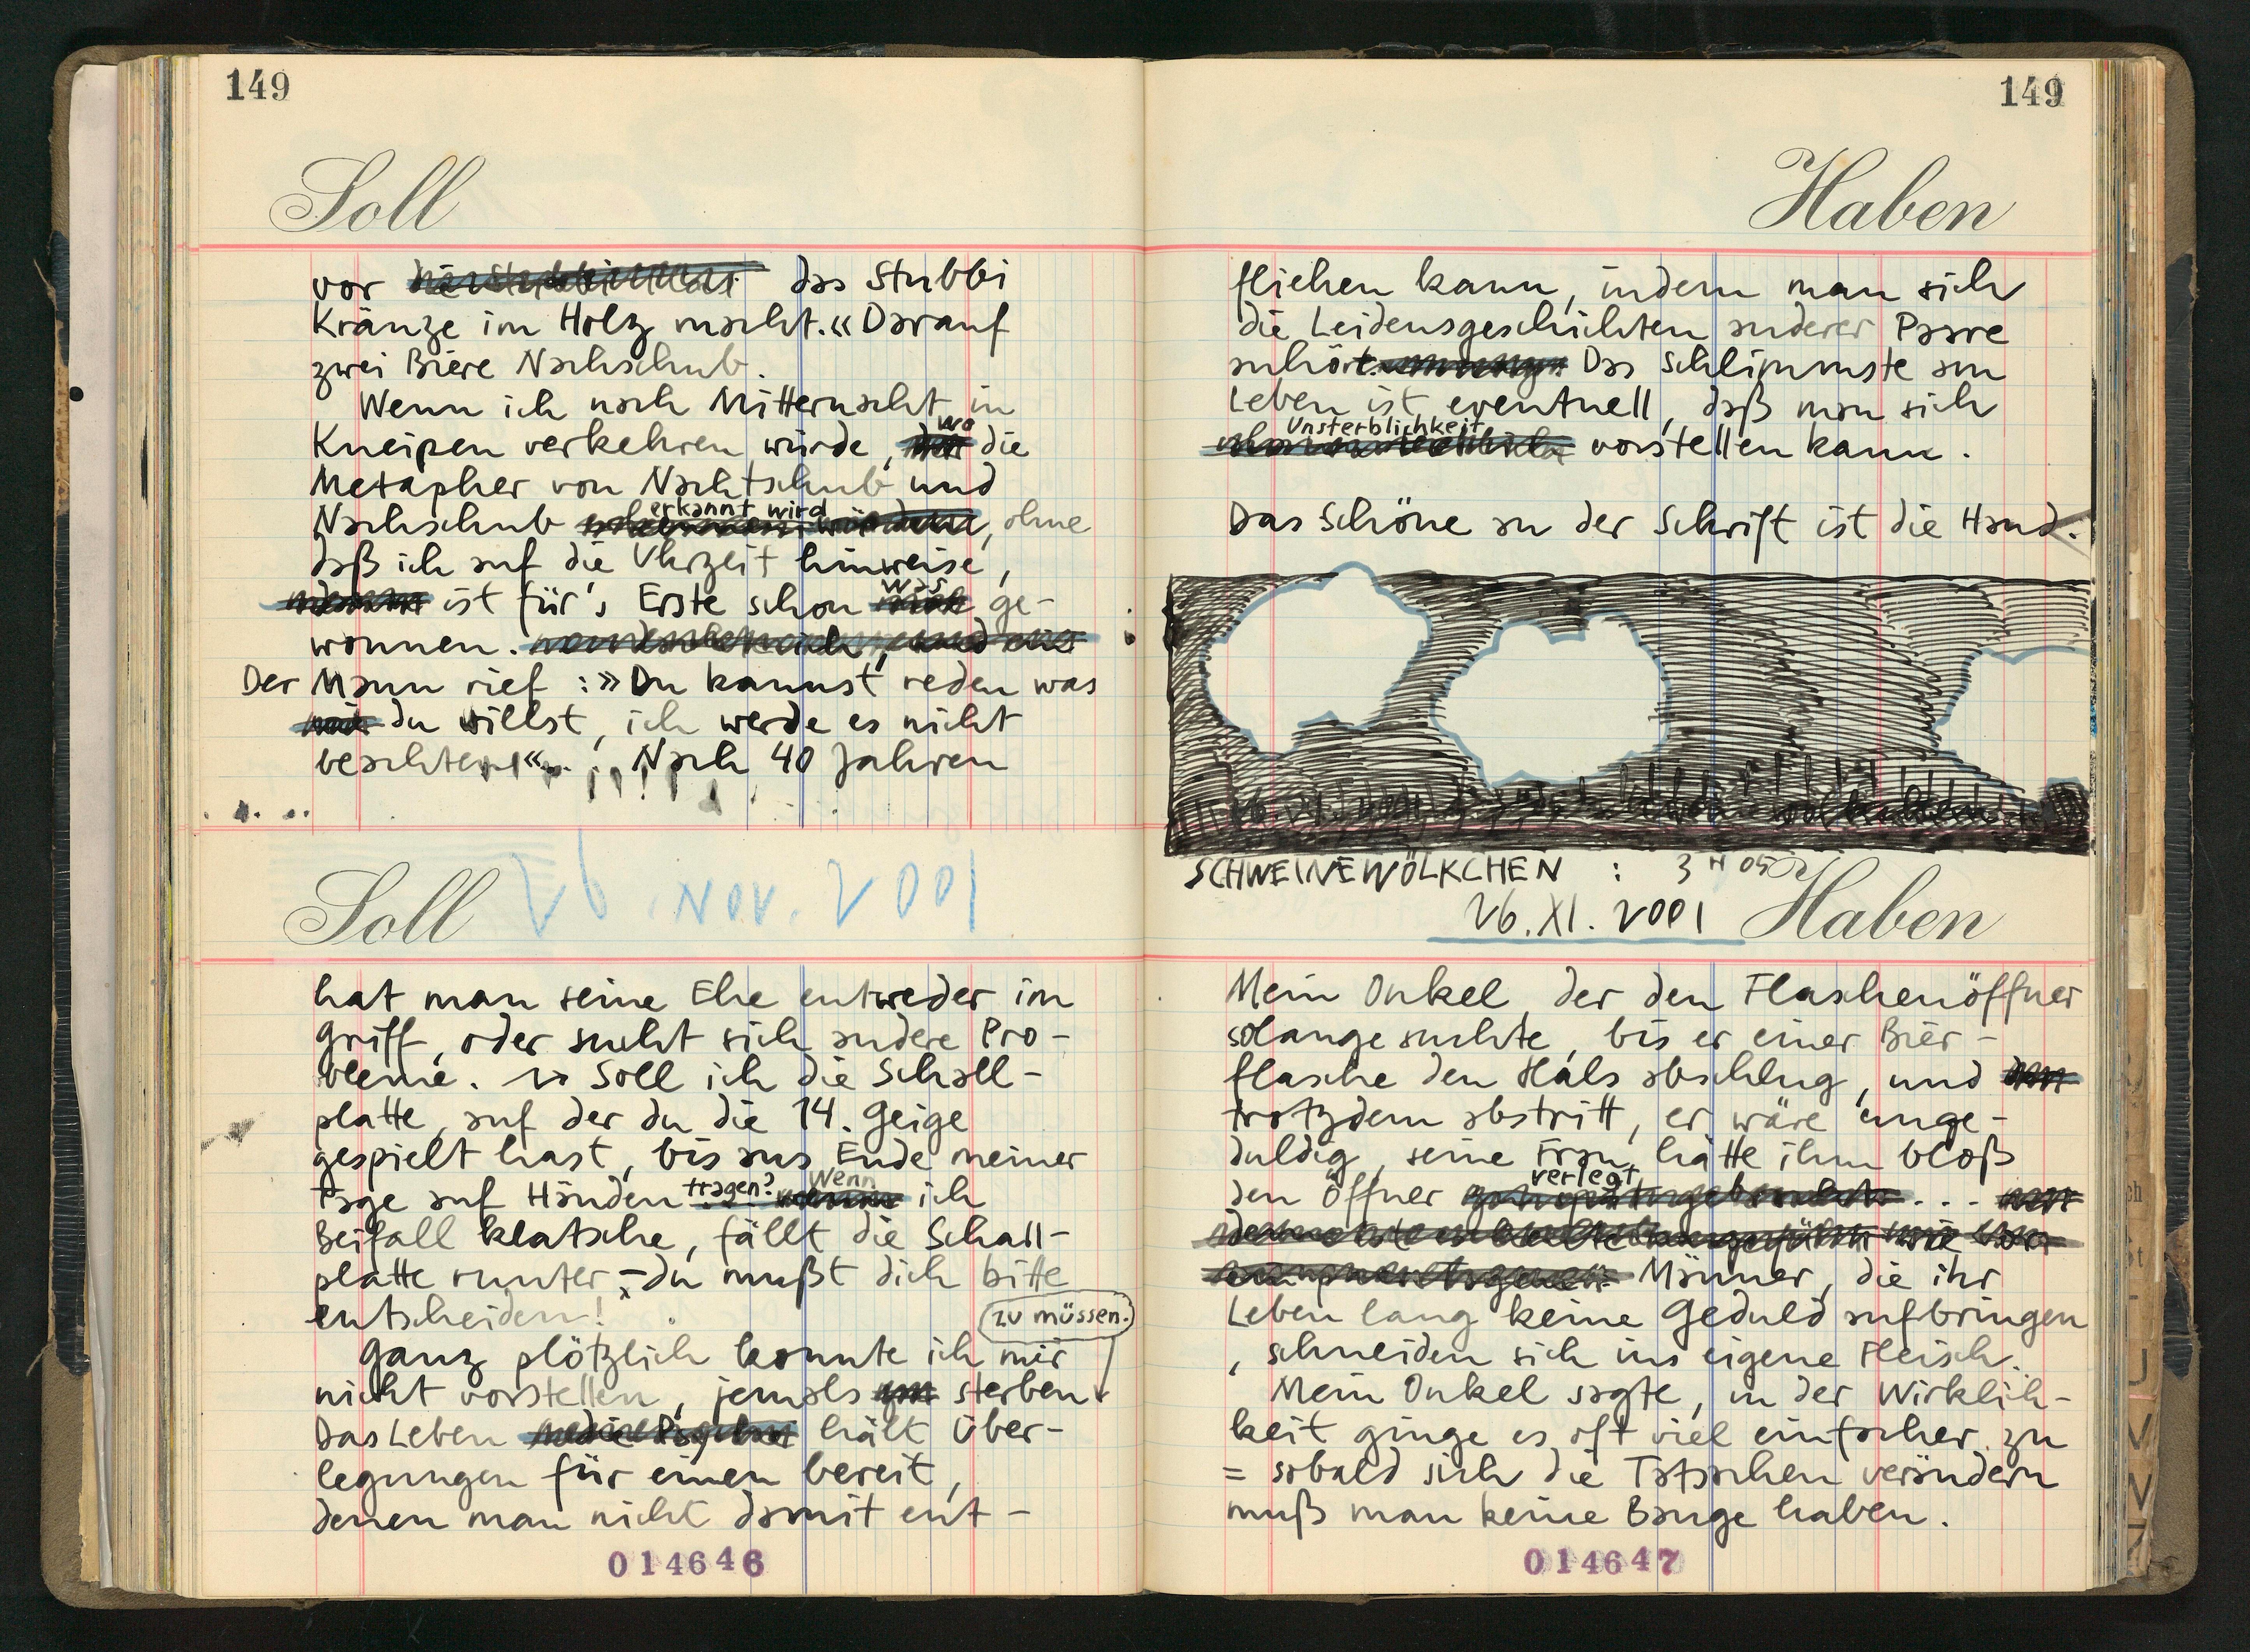 149
Soll
vor das Stubbi
Kränze im Holz macht.« Darauf
zwei Biere Nachschub.
Wenn ich nach Mitternacht in
Kneipen verkehren würde, wo die
Metapher von Nachtschub und
Nachschub erkannt wird, ohne
daß ich auf die Uhrzeit hinweise,
ist für's Erste schon was ge-
wonnen.
Der Mann rief: »Du kannst reden was
du willst, ich werde es nicht
beachten«. Nach 40 Jahren
Soll 26. Nov. 2001
hat man seine Ehe entweder im
Griff, oder sucht sich andere Pro-
bleme. Soll ich die Schall-
platte, auf der du die 14. Geige
gespielt hast, bis ans Ende meiner
Tage auf Händen tragen? Wenn ich
Beifall klatsche, fällt die Schall-
platte runter – du mußt dich bitte
entscheiden!
Ganz plötzlich konnte ich mir
nicht vorstellen, jemals sterben zu müssen.
Das Leben hält Über-
legungen für einen bereit,
denen man nicht damit ent-
014646
149
Haben
fliehen kann, indem man sich
die Leidensgeschichten anderer Paare
anhört. Das Schlimmste am
Leben ist eventuell, daß man sich
Unsterblichkeit vorstellen kann.
Das Schöne an der Schrift ist die Hand.
SCHWEINEWÖLKCHEN : 3 H 05
26.XI.2001 Haben
Mein Onkel der den Flaschenöffner
solange suchte, bis er einer Bier-
flasche den Hals abschlug, und
trotzdem abstritt, er wäre unge-
duldig, seine Frau hätte ihm bloß
den Öffner verlegt ...
Männer, die ihr
Leben lang keine Geduld aufbringen
, schneiden sich ins eigene Fleisch.
Mein Onkel sagte, in der Wirklich-
keit ginge es oft viel einfacher zu
= sobald sich die Tatsachen verändern
muß man keine Bange haben.
014647